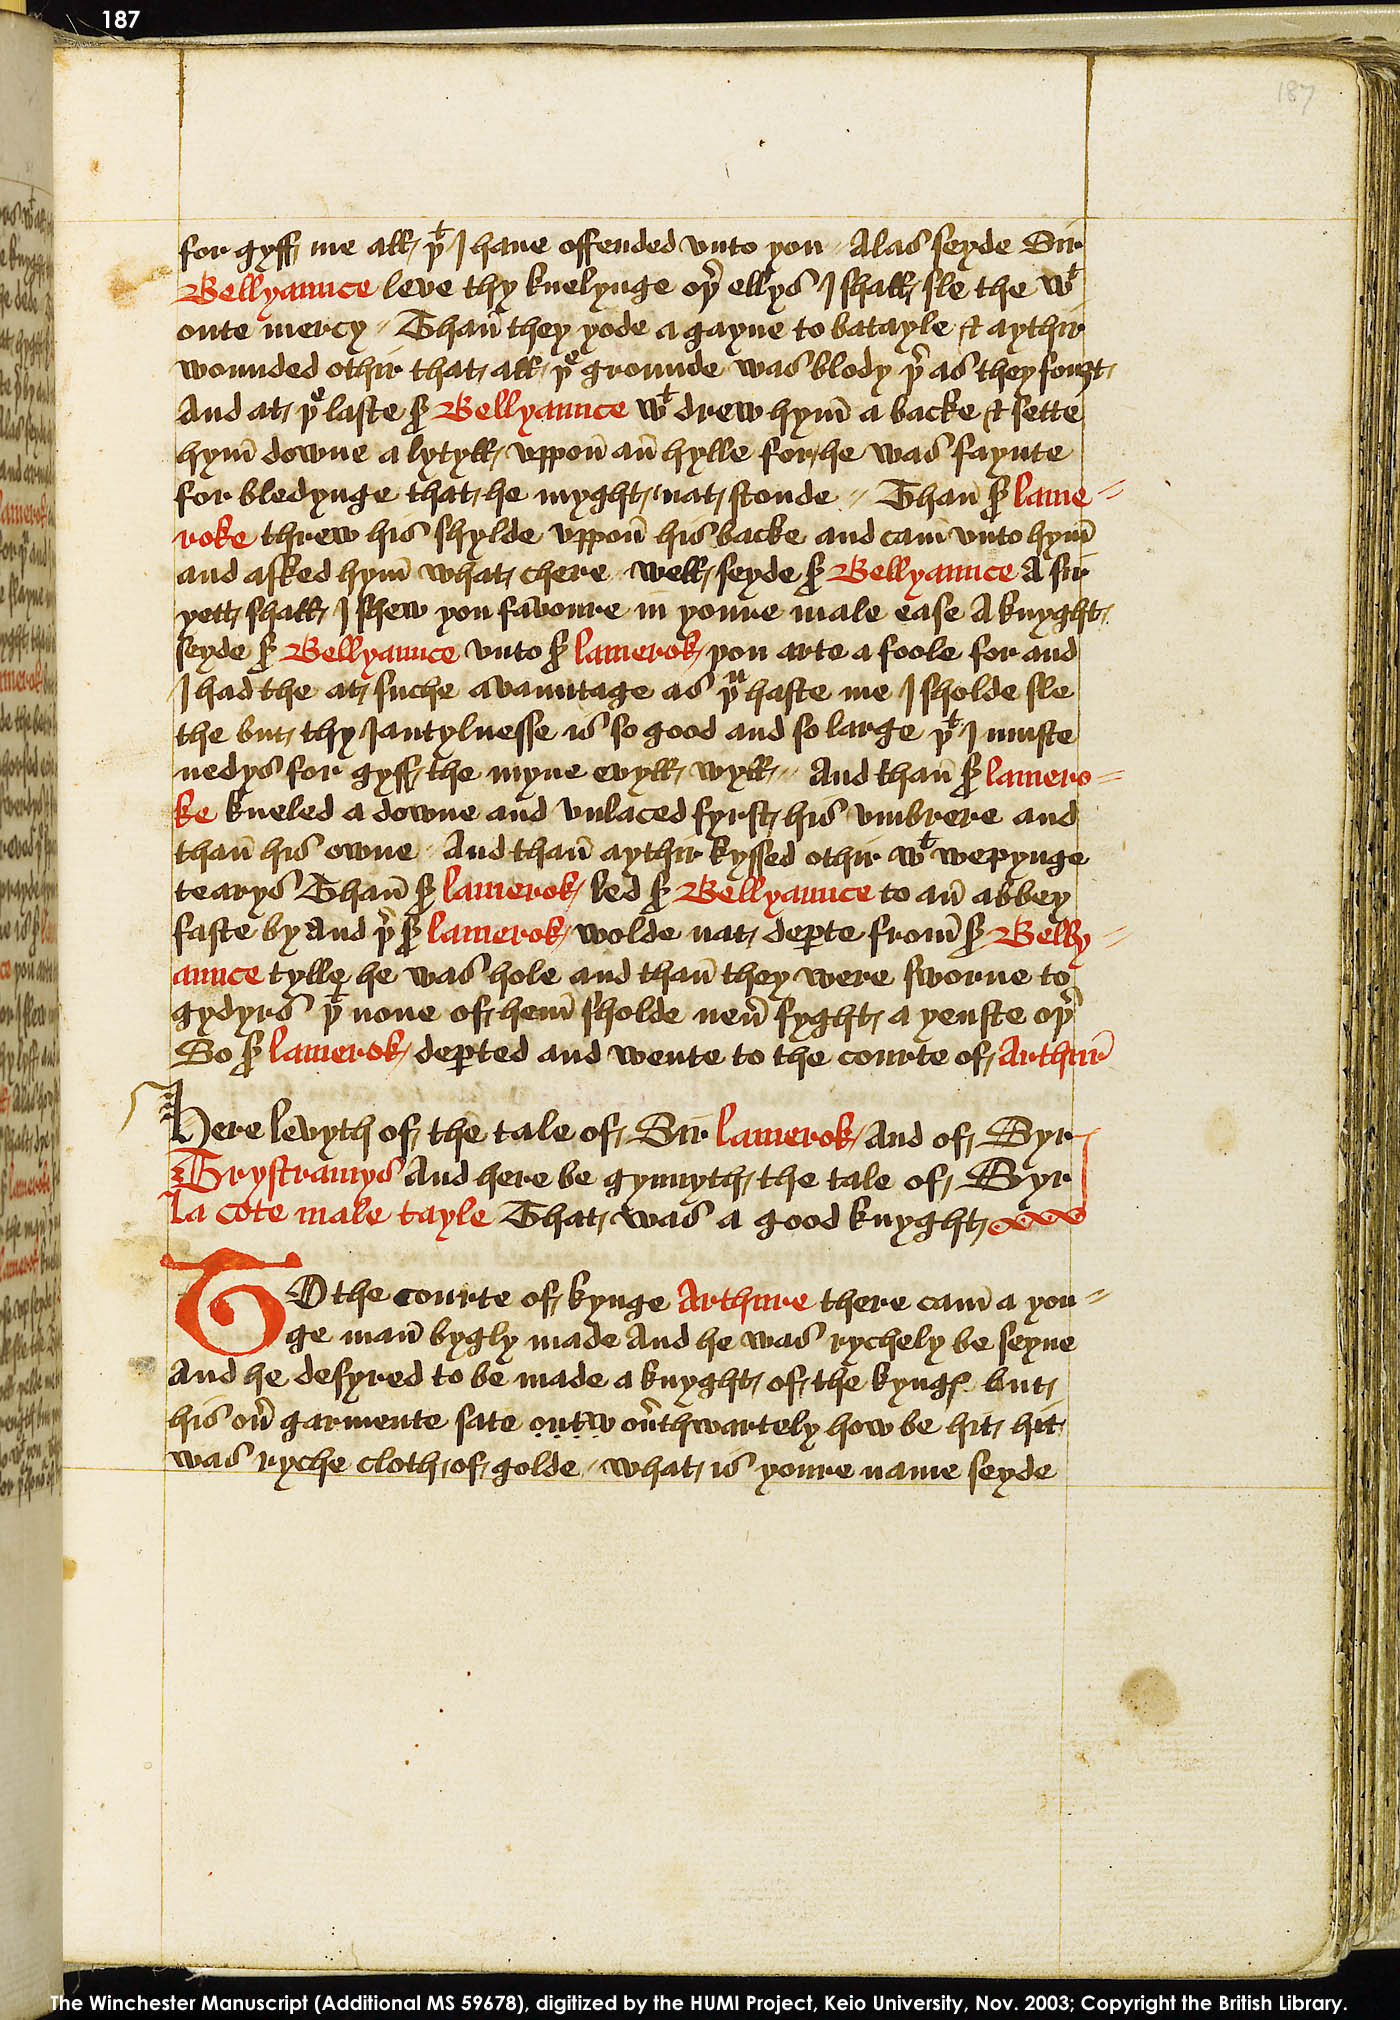 187
187
for gyff me all þᵗ I haue offended vnto you // Alas seyde Sir
Bellyaunce leve thy knelynge oþ̉ ellys I shall sle the wᵗ
oute mercy // Than̄ they yode a gayne to batayle & aythir
wounded othir that all þᵉ grounde was blody þ̉ as they fought
And at þᵉ laste sͬ Bellyaunce wᵗ drew hym̄ a backe & sette
hym̄ downe a lytyll vppon̄ an̄ hylle for he was faynte
for bledynge that he myght nat stonde // Than̄ sͬ lame=
roke threw his shylde vppon̄ his backe and cam̄ vnto hym̄
and asked hym̄ what chere well seyde sͬ Bellyaunce A sir
yett shall I shew you favoure in youre male ease A knyght
seyde sͬ Bellyaunce vnto sͬ lamerok you arte a foole for and
I had the at suche avauntage as þᵘ haste me I sholde sle
the but thy Jantylnesse is so good and so large þᵗ I muste
nedys for gyff the myne evyll wyll // And than̄ sͬ lamero=
ke kneled a downe and vnlaced fyrst his vmbrere and
than̄ his owne // And than̄ aythir kyssed othir wᵗ wepynge
tearys Than̄ sͬ lamerok led sͬ Bellyaunce to an̄ abbey
faste by And þ̉ sͬ lamerok wolde nat deꝑte from̄ sͬ Belly=
aunce tylle he was hole and than̄ they were sworne to
gydyrs þᵗ none of hem̄ sholde neū̉ fyght a yenste oþ̉
So sͬ lamerok deꝑted and wente to the courte of Arthur̄
Here levyth of the tale of Sir lamerok And of Syr
Trystramys And here be gynnyth the tale of Syr
La Cote male tayle That was a good knyght
TO the courte of kynge Arthure there cam̄ a yon=
ge man̄ bygly made And he was rychely be seyne
And he desyred to be made a knyght of the kynge but
his oủ garmente sate outw oủthwartely how be hit hit
was ryche cloth of golde // what is youre name seyde
The Winchester Manuscript (Additional MS 59678), digitized by the HUMI Project, Keio University, Nov. 2003; Copyright the British Library.